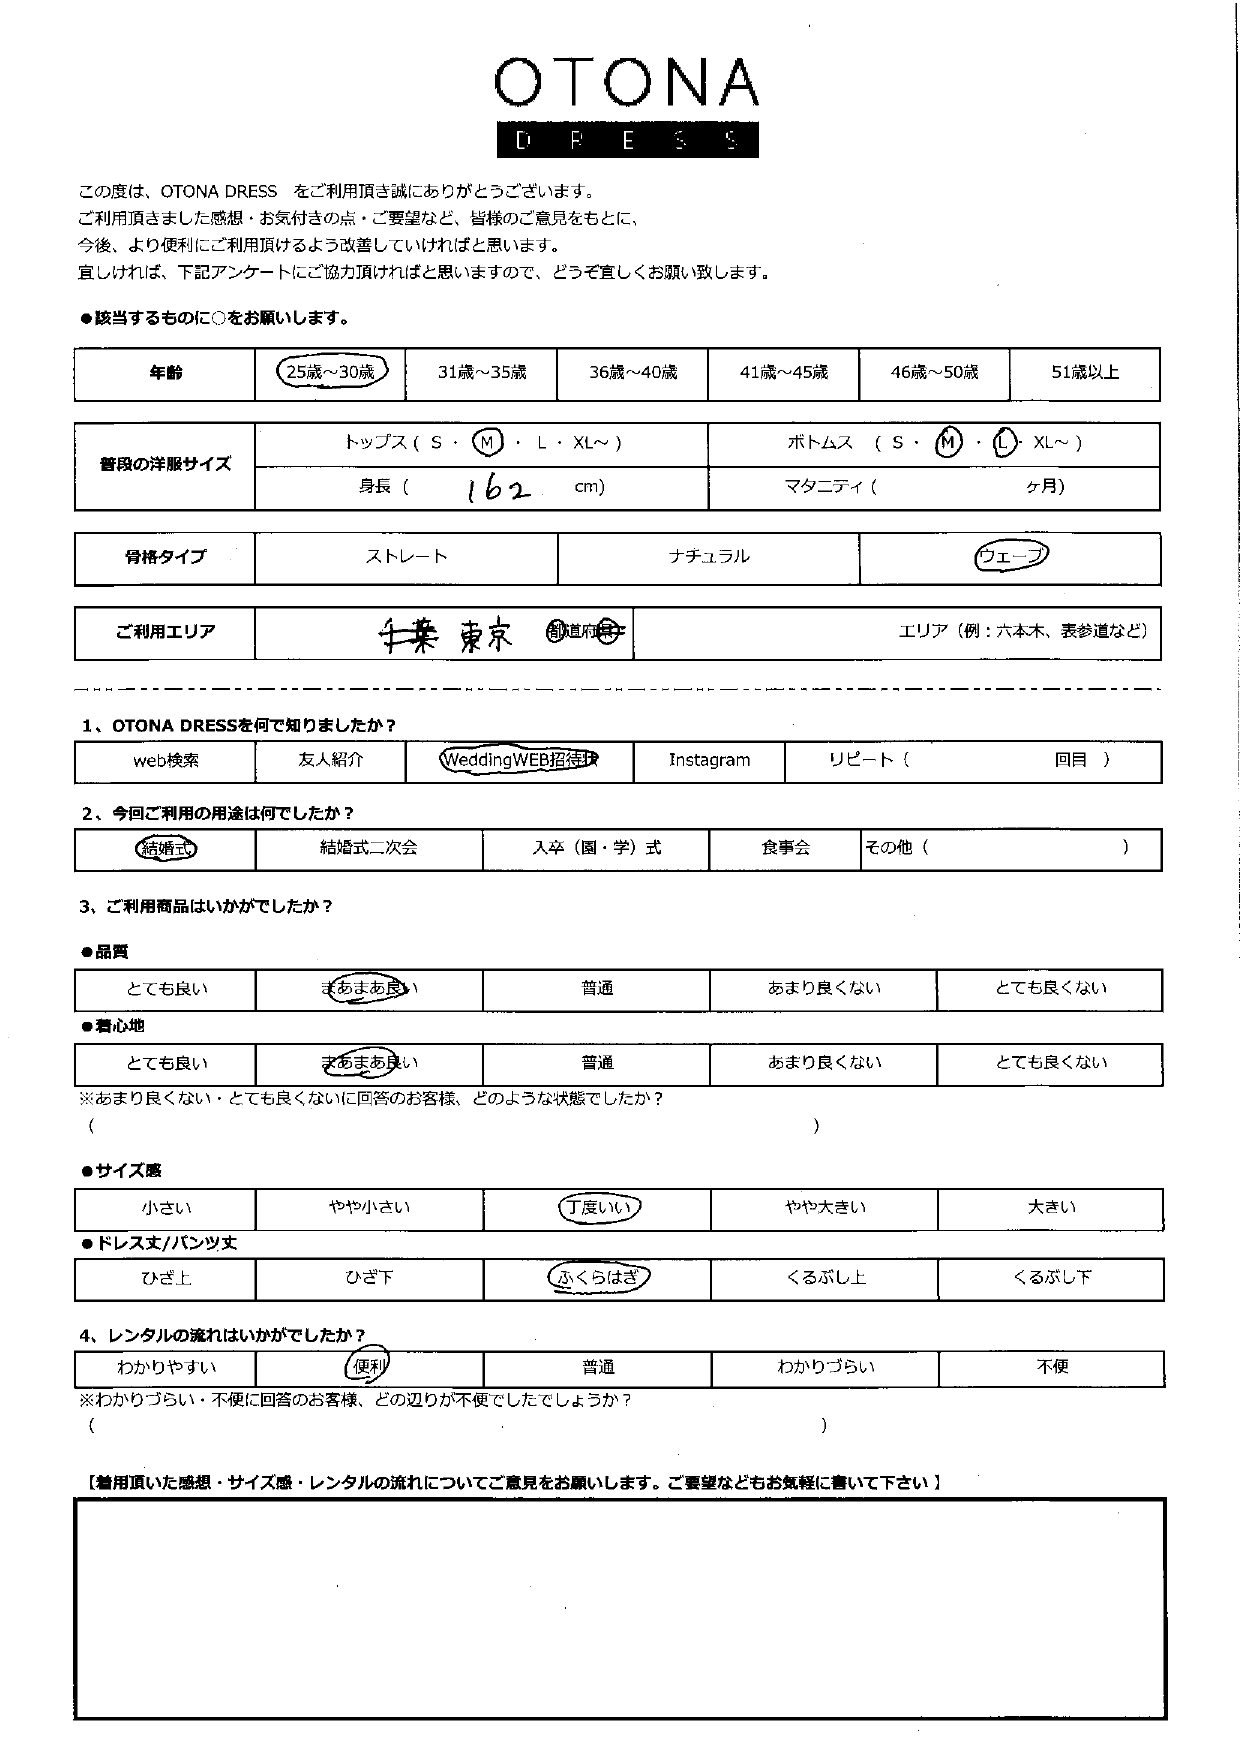 OTONA
DRESS
この度は、OTONA DRESS　をご利用頂き誠にありがとうございます。
ご利用頂きました感想・お気付きの点・ご要望など、皆様のご意見をもとに、
今後、より便利にご利用頂けるよう改善していければと思います。
宜しければ、下記アンケートにご協力頂ければと思いますので、どうぞ宜しくお願い致します。
●該当するものに○をお願いします。
年齢 25歳～30歳 31歳～35歳 36歳～40歳 41歳～45歳 46歳～50歳 51歳以上
普段の洋服サイズ トップス ( S ・ M ・ L ・ XL～ ) ボトムス ( S ・ M ・ L ・ XL～ )
身長 ( 162 cm) マタニティ ( ヶ月)
骨格タイプ ストレート ナチュラル ウェーブ
ご利用エリア 千葉 東京 都道府県 エリア（例：六本木、表参道など）
1、OTONA DRESSを何で知りましたか？
web検索 友人紹介 WeddingWEB招待状 Instagram リピート（ 回目 ）
2、今回ご利用の用途は何でしたか？
結婚式 結婚式二次会 入卒（園・学）式 食事会 その他（ ）
3、ご利用商品はいかがでしたか？
●品質
とても良い まあまあ良い 普通 あまり良くない とても良くない
●着心地
とても良い まあまあ良い 普通 あまり良くない とても良くない
※あまり良くない・とても良くないに回答のお客様、どのような状態でしたか？
（ ）
●サイズ感
小さい やや小さい 丁度いい やや大きい 大きい
●ドレス丈/パンツ丈
ひざ上 ひざ下 ふくらはぎ くるぶし上 くるぶし下
4、レンタルの流れはいかがでしたか？
わかりやすい 便利 普通 わかりづらい 不便
※わかりづらい・不便に回答のお客様、どの辺りが不便でしたでしょうか？
（ ）
【着用頂いた感想・サイズ感・レンタルの流れについてご意見をお願いします。ご要望などもお気軽に書いて下さい 】